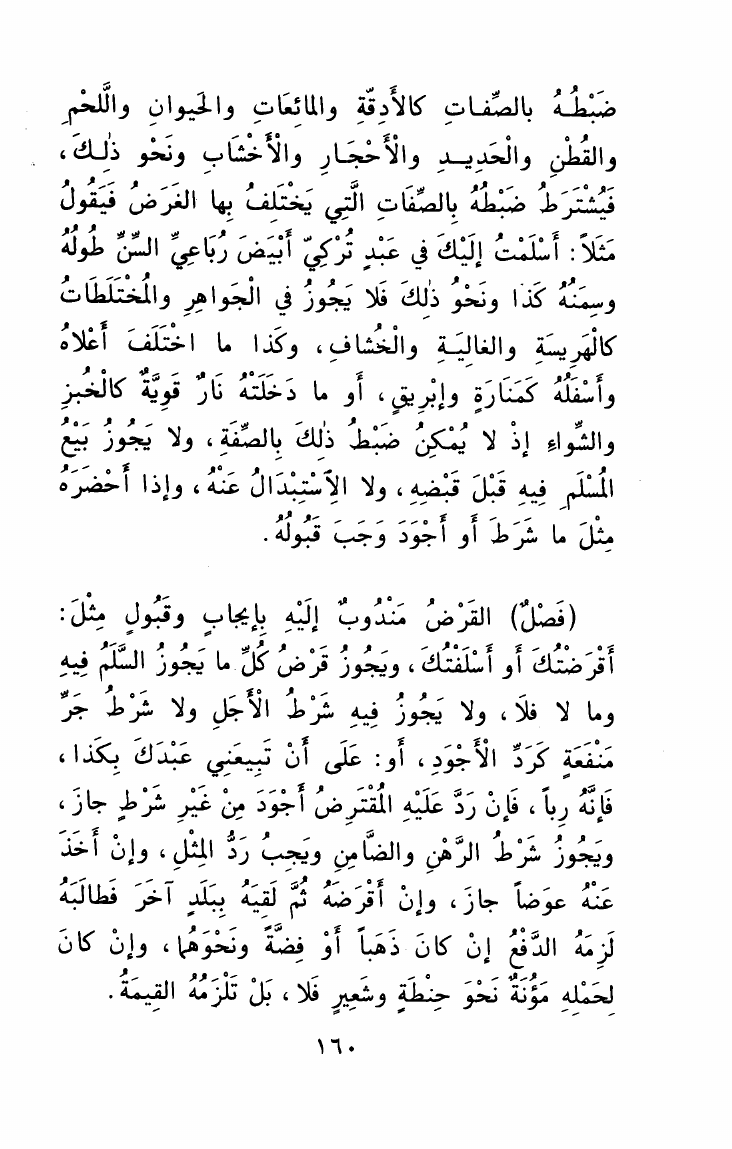 ضَبْطُهُ بالصِّفاتِ كالأَدِقَّةِ والمائِعَاتِ والحَيوانِ واللَّحْمِ
والقُطْنِ والْحَدِيدِ والْأَحْجَارِ والْأَخْشَابِ ونَحْوِ ذٰلِكَ،
فَيُشْتَرَطُ ضَبْطُهُ بِالصِّفَاتِ الَّتِي يَخْتَلِفُ بِها الغَرَضُ فَيَقُولُ
مَثَلاً: أَسْلَمْتُ إِلَيْكَ فِي عَبْدٍ تُرْكِيٍّ أَبْيَضَ رُبَاعِيِّ السِّنِّ طُولُهُ
وسِمَنُهُ كَذَا ونَحْوُ ذٰلِكَ فَلا يَجُوزُ فِي الْجَواهِرِ والْمُخْتَلَطَاتُ
كالْهَرِيسَةِ والغالِيَةِ والْخُشافِ، وكَذا ما اخْتَلَفَ أَعْلاهُ
وأَسْفَلُهُ كَمَنَارَةٍ وإِبْرِيقٍ، أو ما دَخَلَتْهُ نَارٌ قَوِيَّةٌ كالْخُبزِ
والشِّواءِ إِذْ لا يُمْكِنُ ضَبْطُ ذٰلِكَ بِالصِّفَةِ، ولا يَجُوزُ بَيْعُ
المُسْلَمِ فِيهِ قَبْلَ قَبْضِهِ، ولا الاسْتِبْدَالُ عَنْهُ، وإذا أَحْضَرَهُ
مِثْلَ ما شَرَطَ أو أَجْوَدَ وَجَبَ قَبُولُهُ.
(فَصْلٌ) القَرْضُ مَنْدُوبٌ إِلَيْهِ بِإيجابٍ وقَبُولٍ مِثْلَ:
أَقْرَضْتُكَ أو أَسْلَفْتُكَ، ويَجُوزُ قَرْضُ كُلِّ ما يَجُوزُ السَّلَمُ فِيهِ
وما لا فلَا، ولا يَجُوزُ فِيهِ شَرْطُ الْأَجَلِ ولا شَرْطُ جَرِّ
مَنْفَعَةٍ كَرَدِّ الْأَجْوَدِ، أو: عَلَى أَنْ تَبِيعَنِي عَبْدَكَ بِكَذا،
فَإِنَّهُ رِباً، فَإِنْ رَدَّ عَلَيْهِ المُقْتَرِضُ أَجْوَدَ مِنْ غَيْرِ شَرْطٍ جازَ،
ويَجُوزُ شَرْطُ الرَّهْنِ والضَّامِنِ ويَجِبُ رَدُّ المِثْلِ، وإنْ أَخَذَ
عَنْهُ عِوَضاً جازَ، وإِنْ أَقْرَضَهُ ثُمَّ لَقِيَهُ بِبَلَدٍ آخَرَ فَطالَبَهُ
لَزِمَهُ الدَّفْعُ إِنْ كانَ ذَهَباً أَوْ فِضَّةً ونَحْوَهُما، وإِنْ كانَ
لِحَمْلِهِ مَؤُنَةٌ نَحْوَ حِنْطَةٍ وشَعِيرٍ فَلا، بَلْ تَلْزَمُهُ القِيمَةُ.
١٦٠